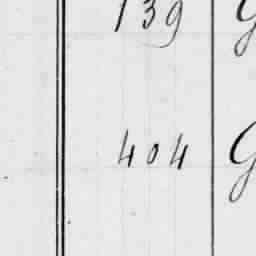 139 G
404 G